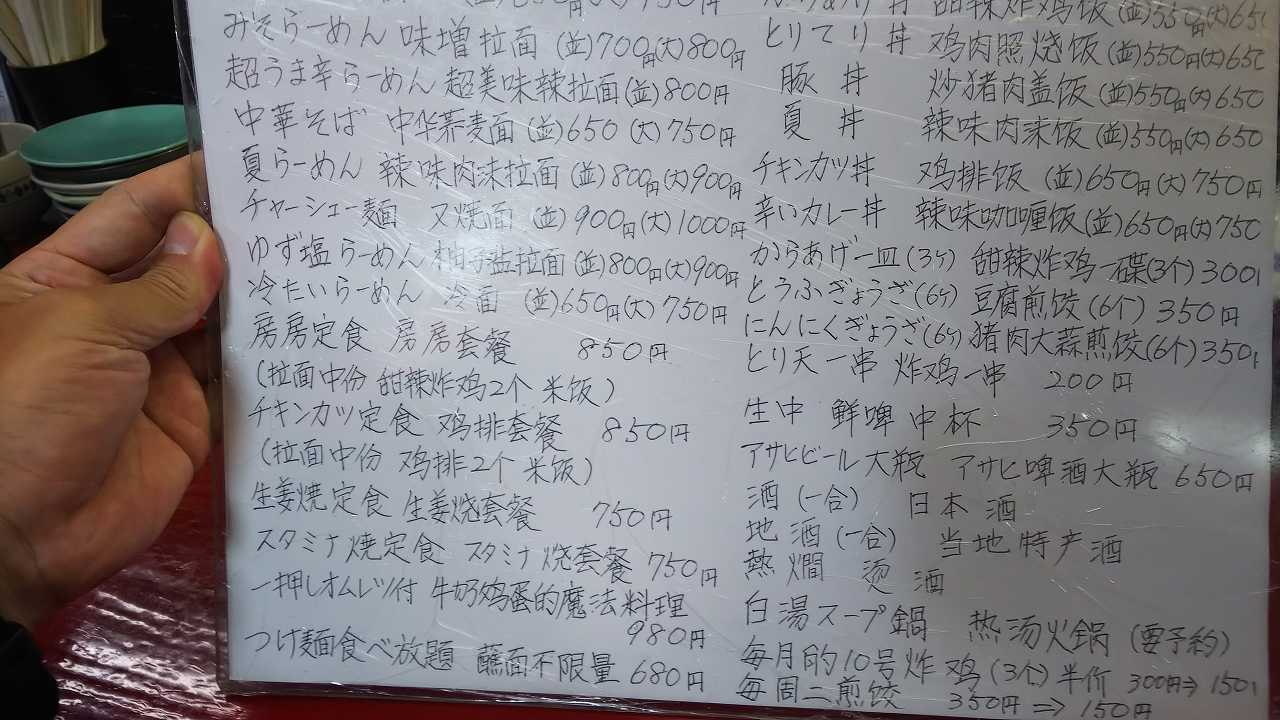 みそらーめん 味増拉面 (並)700円(大)800円
超うま辛らーめん 超美味辣拉面(並)800円
中華そば 中华荞麦面(並)650 (大)750円
夏らーめん 辣味肉沫拉面(並)800円(大)900円
チャーシュー麺 叉焼面 (並)900円(大)1000円
ゆず塩らーめん 柚子盐拉面(並)800円(大)900円
冷たいらーめん 冷面 (並)650円(大)750円
房房定食 房房套餐 850円
(拉面中份 甜辣炸鸡2个 米饭)
チキンカツ定食 鸡排套餐 850円
(拉面中份 鸡排2个 米饭)
生姜焼定食 生姜烧套餐 750円
スタミナ焼定食 スタミナ烧套餐 750円
一押しオムレツ付 牛奶鸡蛋的魔法料理
980円
つけ麺食べ放題 蘸面不限量 680円
丼 甜辣炸鸡饭(並)550円(大)650
とりてり丼 鸡肉照烧饭(並)550円(大)650
豚丼 炒猪肉盖饭(並)550円(大)650
夏丼 辣味肉沫饭(並)550円(大)650
チキンカツ丼 鸡排饭 (並)650円(大)750円
辛いカレー丼 辣味咖喱饭(並)650円(大)750
からあげ一皿(3ケ) 甜辣炸鸡一碟(3个)300
とうふぎょうざ(6ケ) 豆腐煎饺(6个)350円
にんにくぎょうざ(6ケ)猪肉大蒜煎饺(6个)350
とり天一串 炸鸡一串 200円
生中 鲜啤中杯 350円
アサヒビール大瓶 アサヒ啤酒大瓶 650円
酒(一合) 日本酒
地酒(一合) 当地特产酒
熱燗 烫酒
白湯スープ鍋 热汤火锅(要予約)
毎月的10号炸鸡(3个)半价 300円⇒150
毎周二煎饺 350円⇒150円